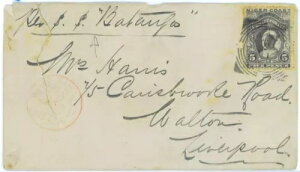 Per S.S. "Batanga"
Mrs Harris
1/5 Carisbrooke Road.
Walton.
Liverpool.
NIGER COAST
5 5